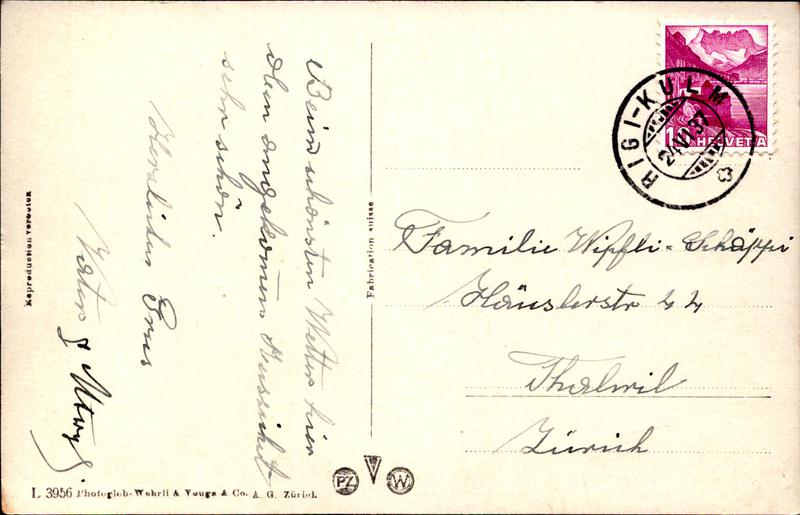 Beim schönsten Wetter hier
oben angekommen Aussicht
sehr schön.
Herzlichen Gruss
Vater &
Familie Wipfli-Schäppi
Häuslerstr 44
Thalwil
Zürich
RIGI-KULM
24.VI.37
10 HELVETIA
Fabrication suisse
Reproduction verboten
PZ
W
L 3956 Photoglob-Wehrli & Vouga & Co. A. G. Zürich.